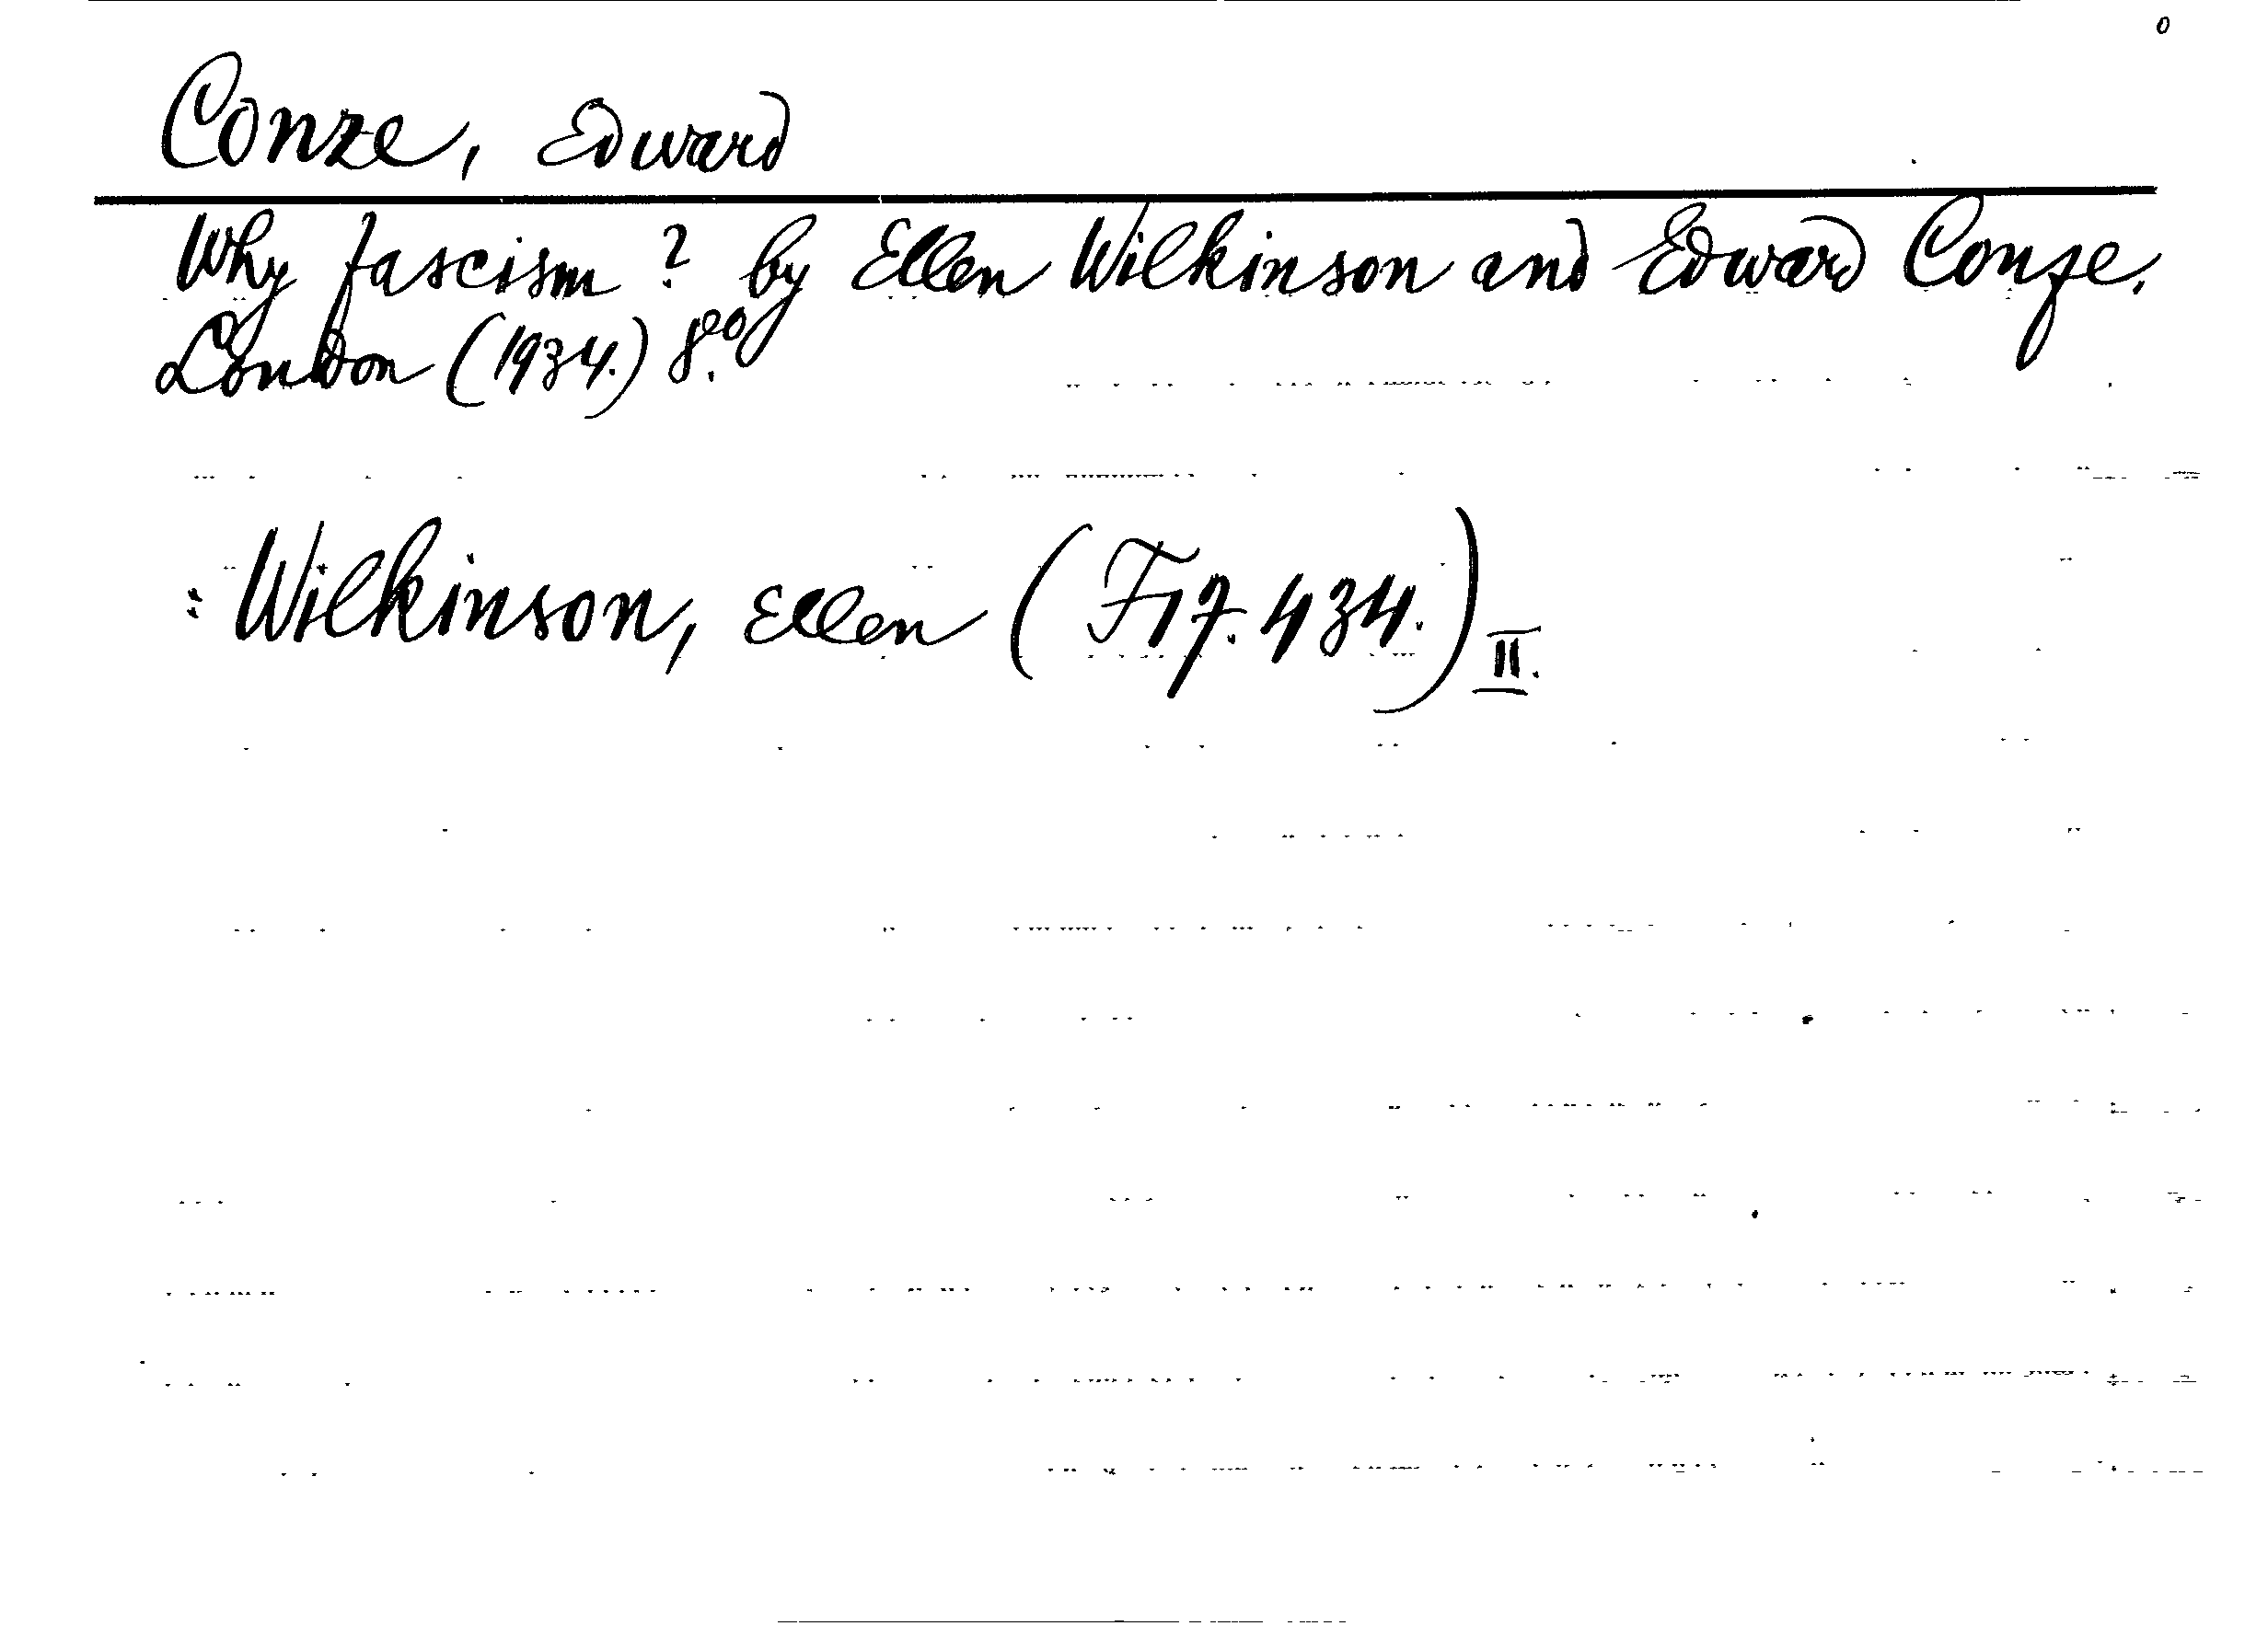 Conze, Edward
Why fascism? by Ellen Wilkinson and Edward Conze.
London (1934.) 8.º
: Wilkinson, Ellen (F17.434.) II.